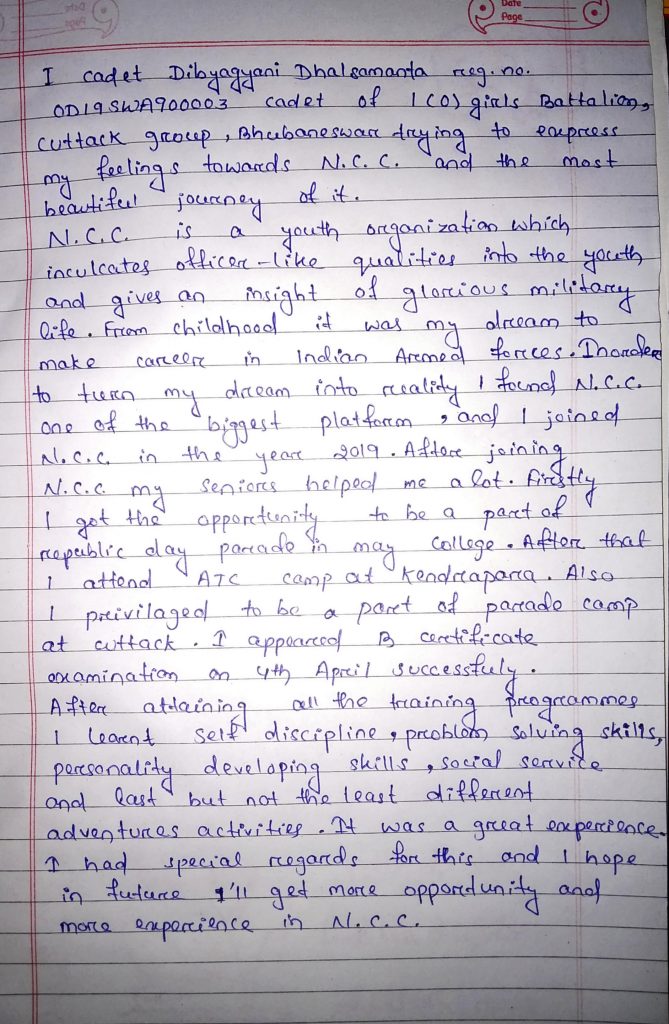 Date
Page
I cadet Dibyagyani Dhalsamanta reg. no.
OD19SWA900003 cadet of 1(O) girls Battalion,
cuttack group, Bhubaneswar trying to express
my feelings towards N.C.C. and the most
beautiful journey of it.
N.C.C. is a youth organization which
inculcates officer-like qualities into the youth
and gives an insight of glorious military
life. From childhood it was my dream to
make career in Indian Armed forces. Inorder
to turn my dream into reality I found N.C.C.
one of the biggest platform, and I joined
N.C.C. in the year 2019. After joining
N.C.C. my seniors helped me a lot. Firstly
I got the opportunity to be a part of
republic day parade in may college. After that
I attend ATC camp at Kendrapara. Also
I privilaged to be a part of parade camp
at cuttack. I appeared B certificate
examination on 4th April successfuly.
After attaining all the training programmes
I learnt self discipline, problem solving skills,
personality developing skills, social service
and last but not the least different
adventures activities. It was a great experience.
I had special regards for this and I hope
in future I'll get more opportunity and
more experience in N.C.C.